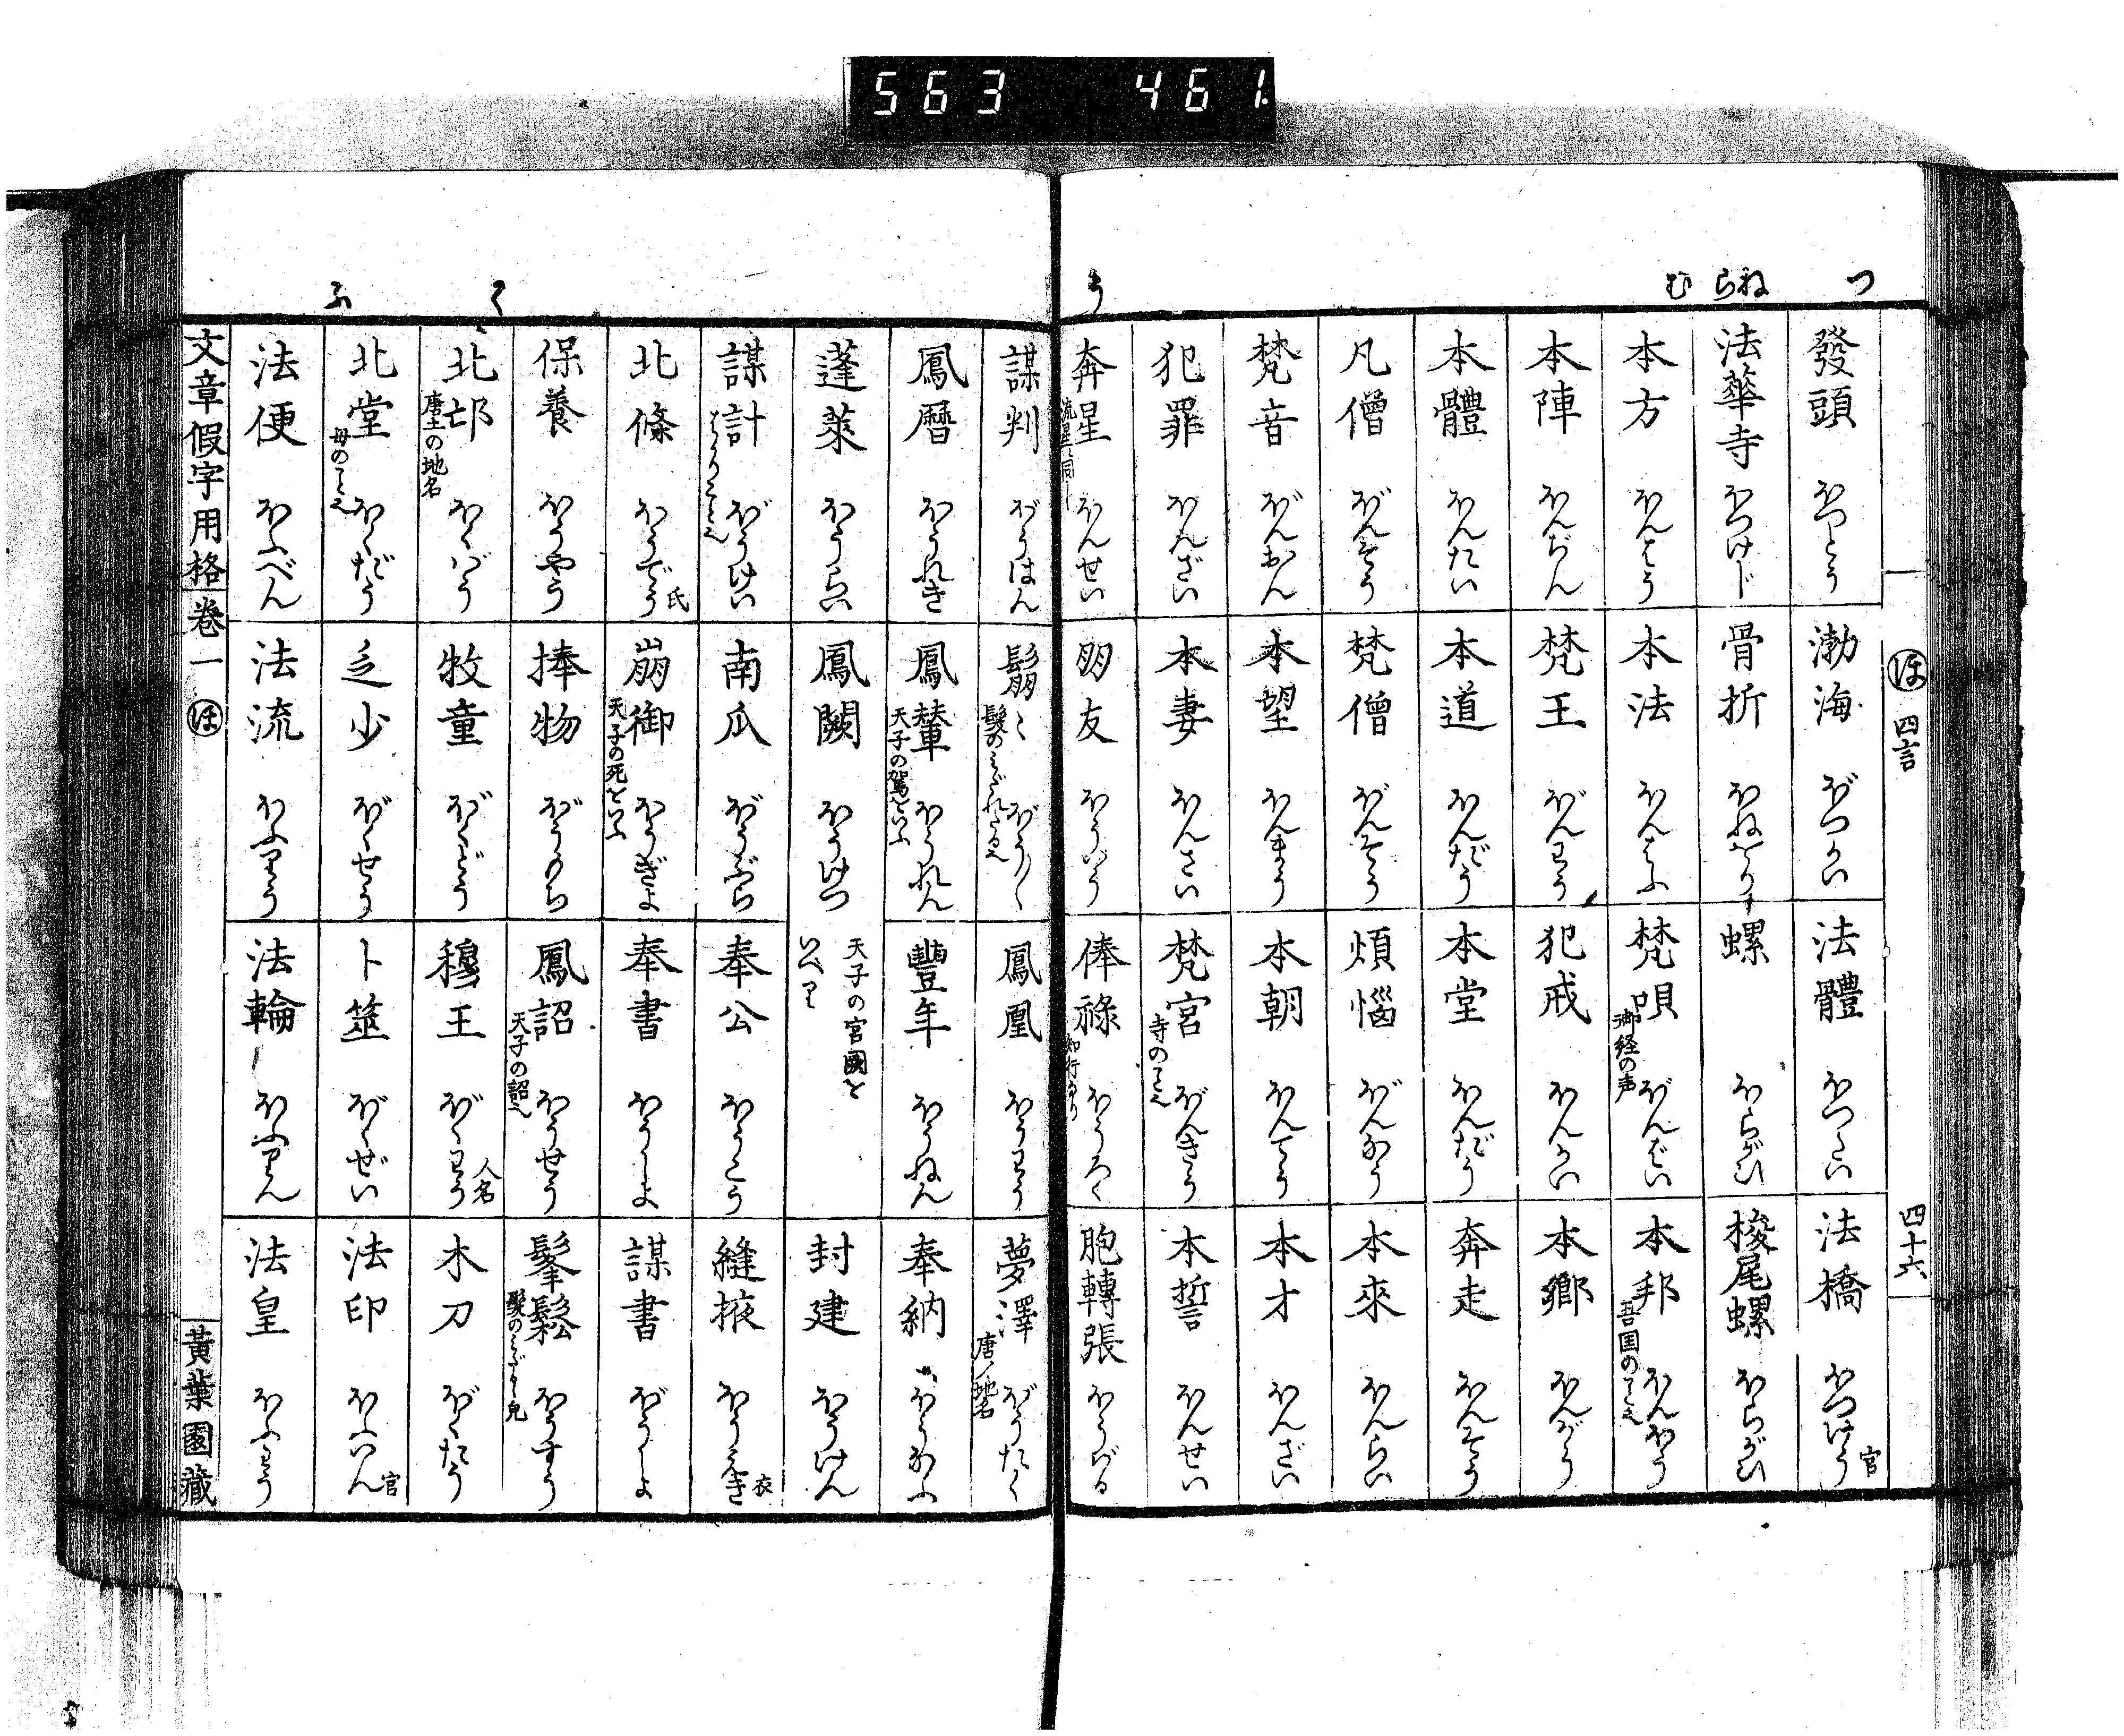 563 461
つ
ね
ら
む
う
ほ 四言 四十六
發頭 ほつとう
渤海 ぼつかい
法體 ほつたい
法橋 ほつけう 官
法華寺 ほつけじ
骨折 ほねをり
螺 ほらがひ
梭尾螺 ほらがひ
本方 ほんはう
本法 ほんはふ
梵唄 御経の声 ぼんばい
本邦 吾国のこと也 ほんぱう
本陣 ほんぢん
梵王 ぼんわう
犯戒 ほんかい
本郷 ほんがう
本體 ほんたい
本道 ほんだう
本堂 ほんだう
奔走 ほんそう
凡僧 ぼんそう
梵僧 ぼんそう
煩惱 ぼんなう
本來 ほんらい
梵音 ぼんおん
本望 ほんまう
本朝 ほんてう
本才 ほんざい
犯罪 ほんざい
本妻 ほんさい
梵宮 寺のこと也 ぼんきう
本誓 ほんせい
奔星 流星に同し ほんせい
朋友 ほういう
俸祿 知行なり ほうろく
胞轉張 ほうぢる
く
ふ
謀判 ぼうはん
鬅〻 髪のみだれたる也 ぼう〳〵
鳳凰 ほうわう
夢澤 唐ノ地名 ぼうたく
鳳暦 ほうれき
鳳輦 天子の駕をいふ ほうれん
豐年 ほうねん
奉納 ほうなふ
蓬萊 ほうらい
鳳闕 ほうけつ 天子の宮國を いへり
封建 ほうけん
謀計 はかりこと也 ぼうけい
南瓜 ぼうぶら
奉公 ほうこう
縫掖 ほうえき 衣
北條 ほうでう 氏
崩御 天子の死をいふ ほうぎよ
奉書 ほうしよ
謀書 ぼうしよ
保養 ほうやう
捧物 ぼうもち
鳳詔 天子の詔也 ほうせう
髼鬆 髪のみだるゝ皃 ほうすう
北邙 唐土の地名 ほくばう
牧童 ぼくどう
穆王 ぼくわう 人名
木刀 ぼくたう
北堂 母のこと也 ほくだう
乏少 ぼくせう
卜筮 ぼくぜい
法印 ほふいん 官
法便 ほふべん
法流 ほふりう
法輪 ほふりん
法皇 ほふわう
文章假字用格 卷一 ほ 黃葉園藏